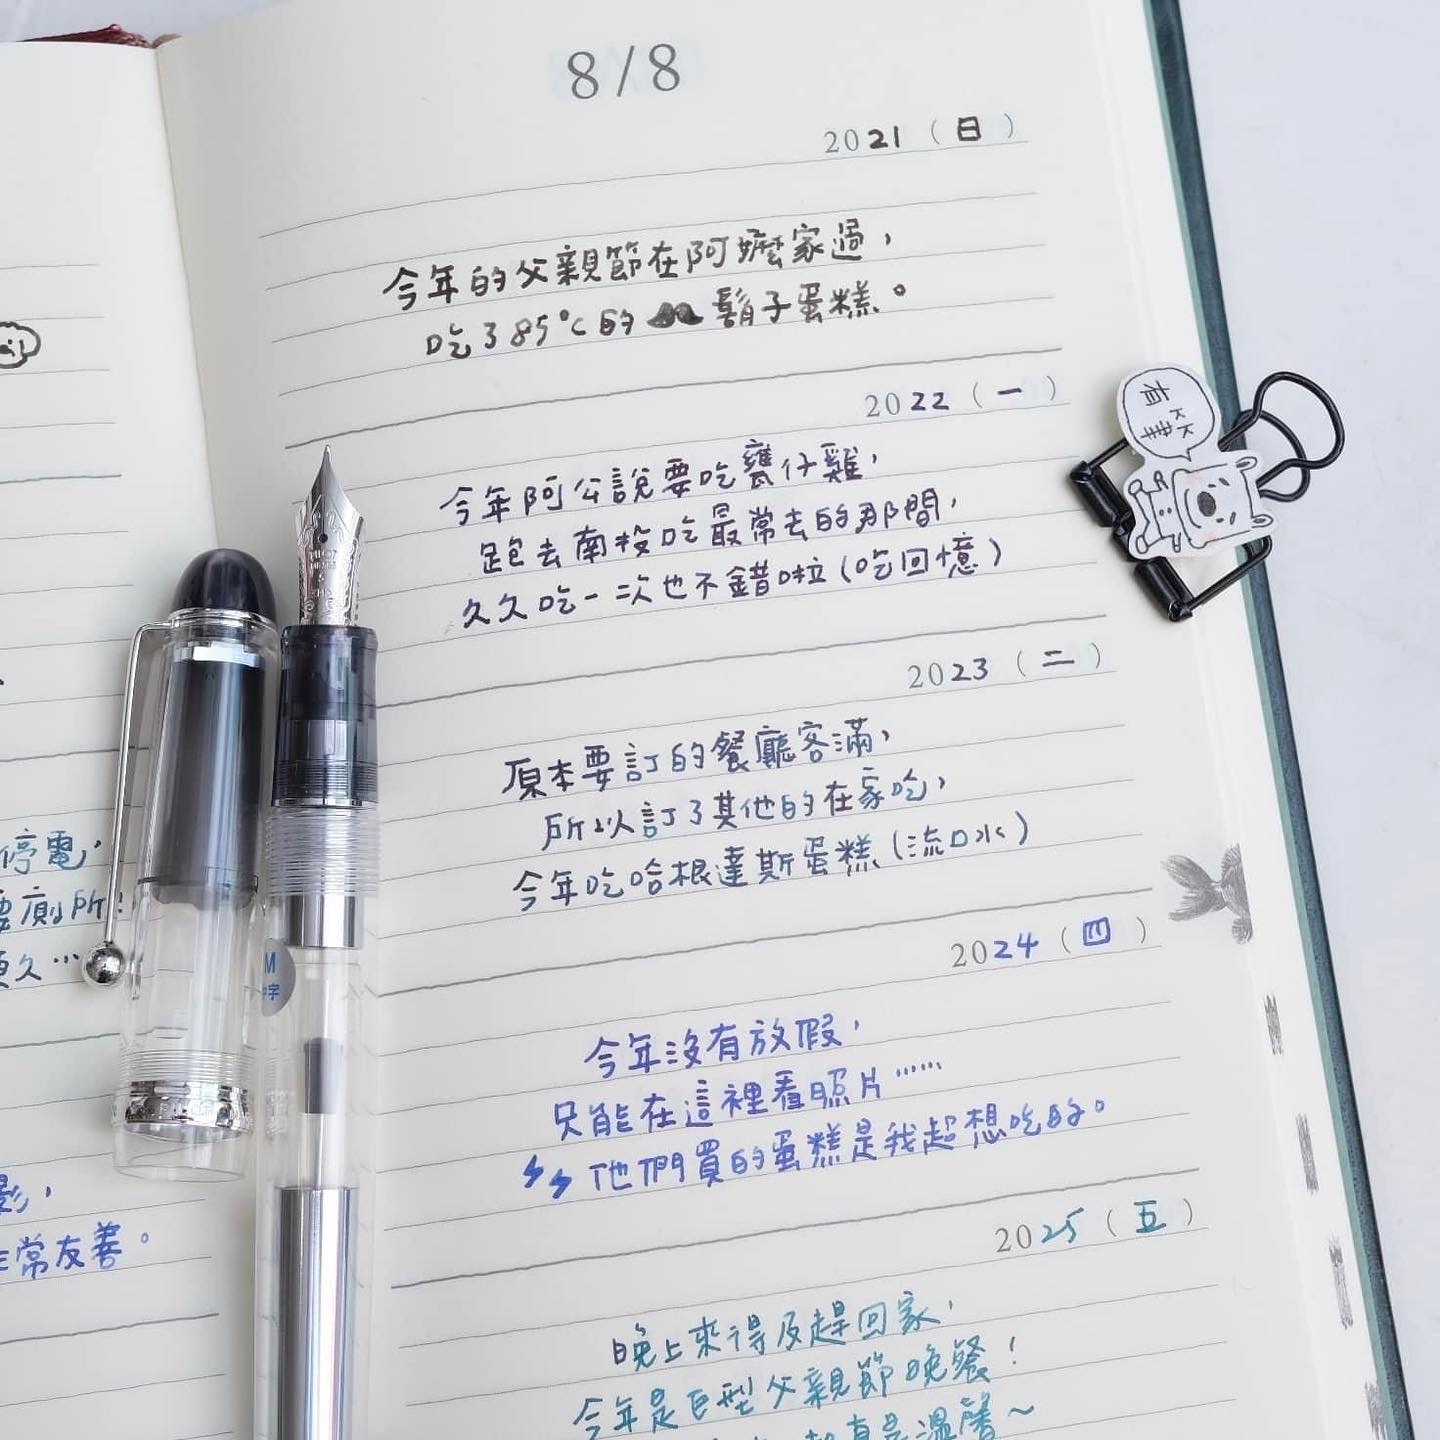 8/8
2021（日）
今年的父親節在阿嬤家過，
吃了85°C的鬍子蛋糕。
2022（一）
今年阿公說要吃甕仔雞，
跑去南投吃最常去的那間，
久久吃一次也不錯啦（吃回憶）
2023（二）
原本要訂的餐廳客滿，
所以訂了其他的在家吃，
今年吃哈根達斯蛋糕（流口水）
2024（四）
今年沒有放假，
只能在這裡看照片……
他們買的蛋糕是我超想吃的。
2025（五）
晚上來得及趕回家，
今年是巨型父親節晚餐！
真是溫馨～
停電，
要廁所！
更久…
影，
非常友善。
有
M
中字